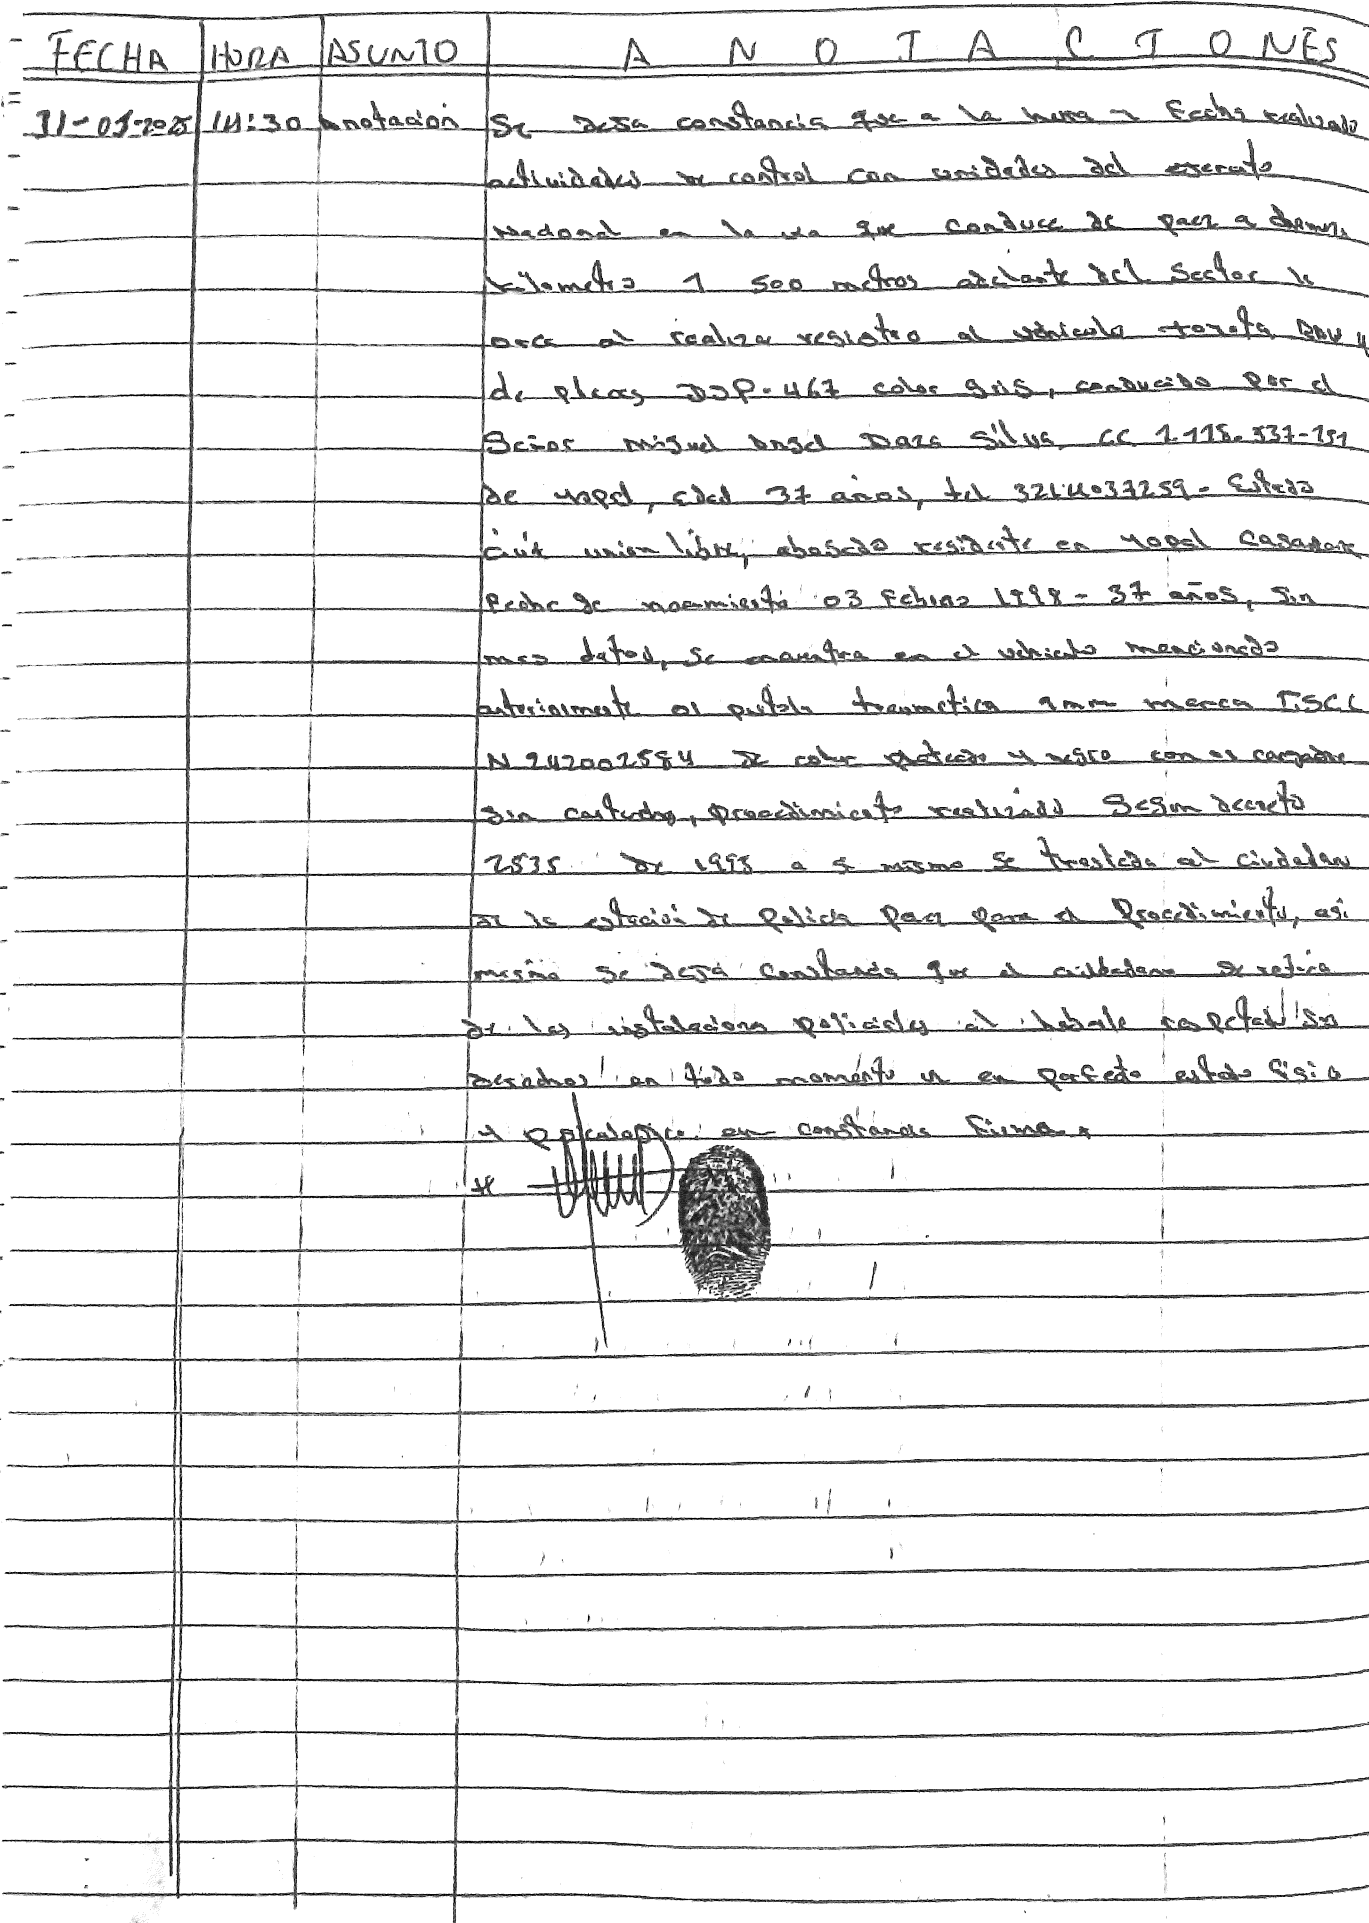 FECHA HORA ASUNTO ANOTACIONES
31-01-2025 14:30 Anotación Se deja constancia que a la hora y Fecha realizado
actividades de control con unidades del ejercito
Nacional en la via que conduce de paez a
kilometro 1 500 metros adelante del Sector la
al realiza registro al vehiculo toyota RAV 4
de placas DJP-467 color gris, conducido por el
Señor miguel angel Daza Silva CC 1.118.537-151
de yopal, edad 37 años, tel 3214037259 - Estado
civil union libre, abogado residente en yopal Casanare
Fecha de nacimiento 03 Febrero 1988 - 37 años, sin
mas datos, se encuentra en el vehiculo mencionado
anteriormente pistola traumatica 9mm marca
N 242002584 de color plateado y negro con cargador
sin cartuchos, procedimiento realizado Segun decreto
2535 De 1993 a si mismo se traslada al ciudadan
de la estacion de policia paez para el Procedimiento, asi
mismo se deja constancia que el ciudadano se retira
de las instalaciones policiales respetando sus
derechos en todo momento y en perfecto estado fisico
y psicologico en constancia Firma.